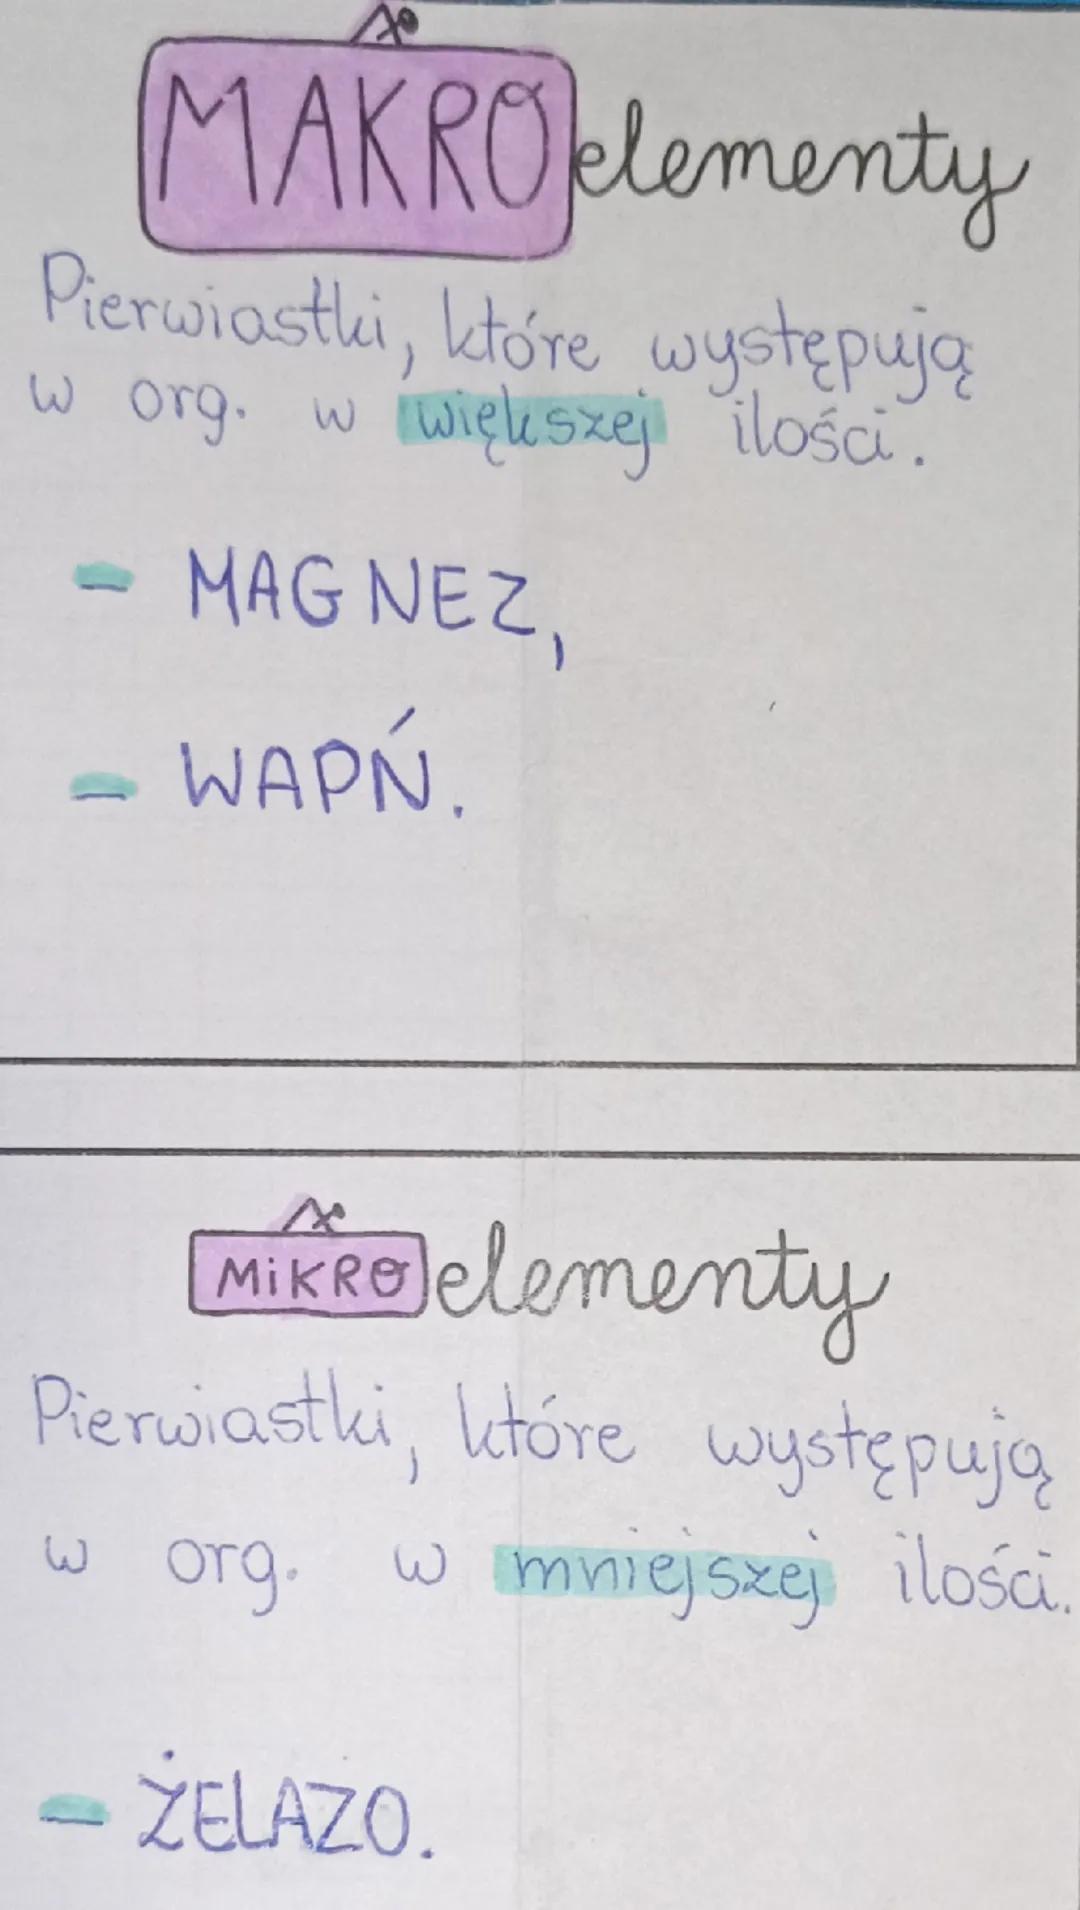 MAKROelementy
Pierwiastki, które występują
w org. w większej ilości.
- MAGNEZ,
- WAPŃ.
MiKROelementy
Pierwiastki, które występują
w org. w mniejszej ilości.
- ŻELAZO.